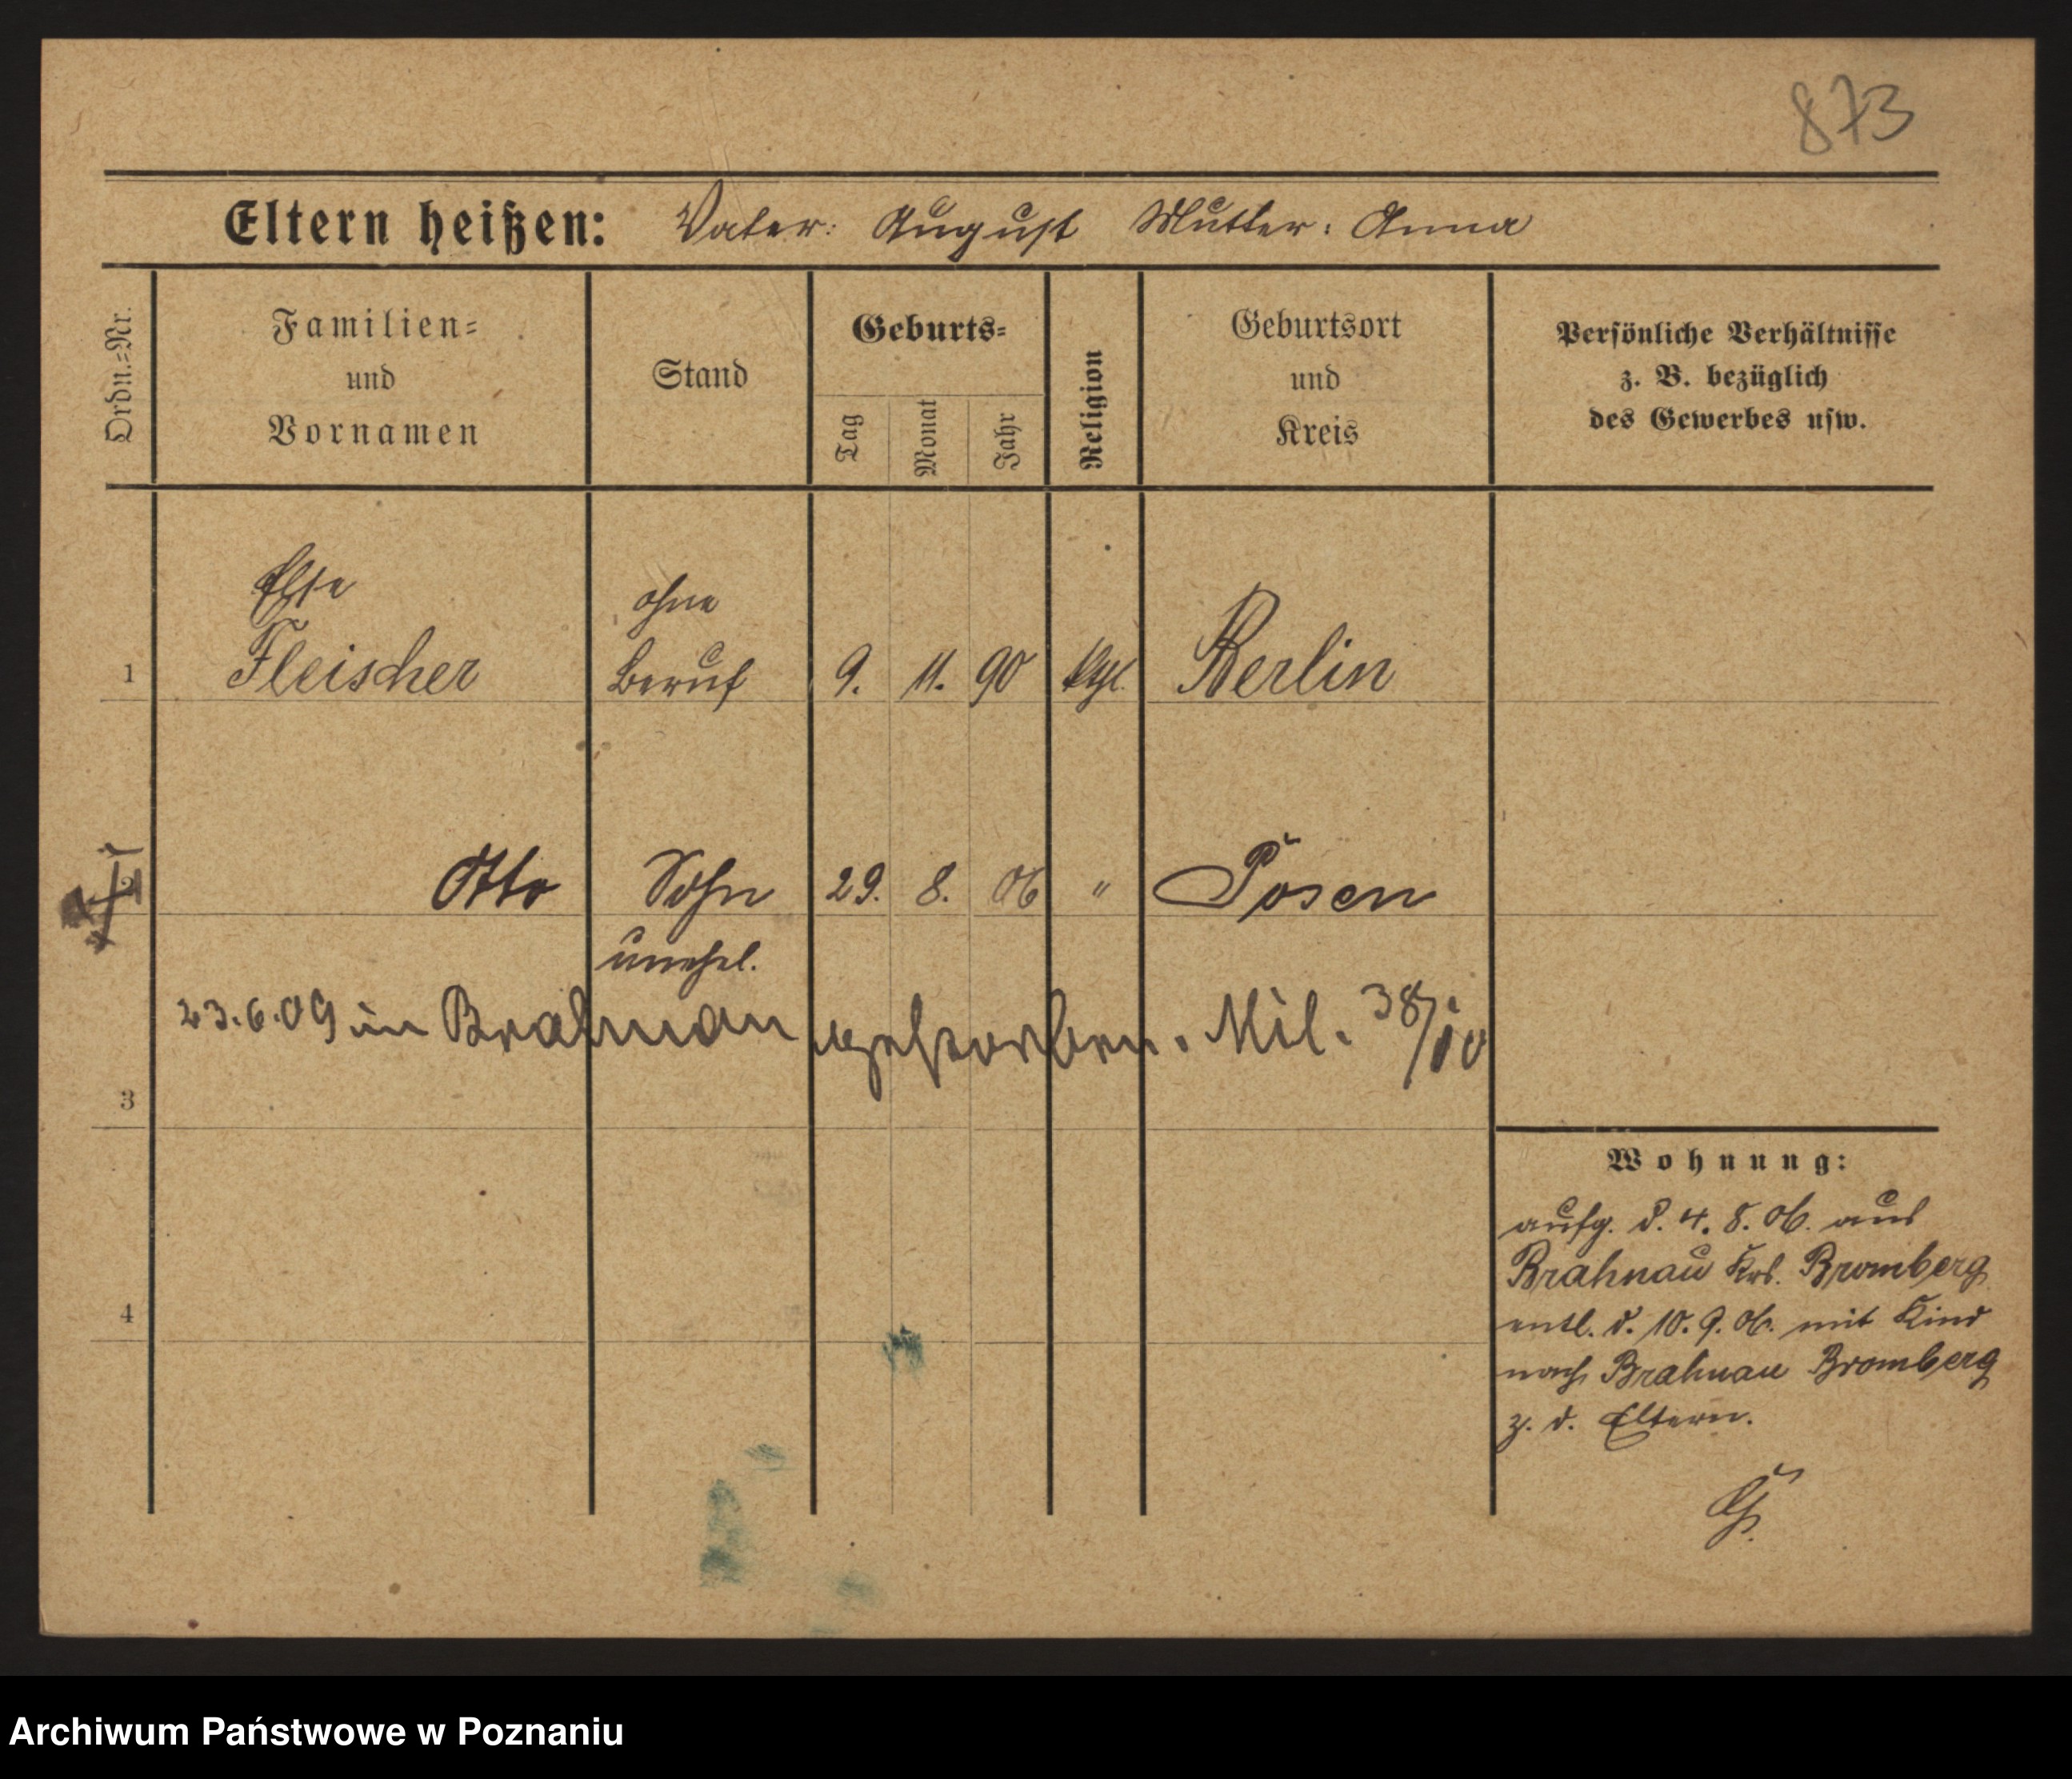 873
Eltern heißen: Vater: August Mutter: Anna
Ordn.=Nr.
Familien=
und
Vornamen
Stand
Geburts=
Tag
Monat
Jahr
Religion
Geburtsort
und
Kreis
Persönliche Verhältnisse
z. B. bezüglich
des Gewerbes usw.
Else ohne
1 Fleischer Beruf 9. 11. 90 ktl. Berlin
2 Otto Sohn 29. 8. 06 " Posen
unehel.
23.6.09 in Brahnau gestorben. Mil. 38/10
3
Wohnung:
aufg. d. 4. 8. 06. aus
Brahnau Krs. Bromberg
4
entl. d. 10. 9. 06. mit Kind
nach Brahnau Bromberg
z. d. Eltern.
Archiwum Państwowe w Poznaniu